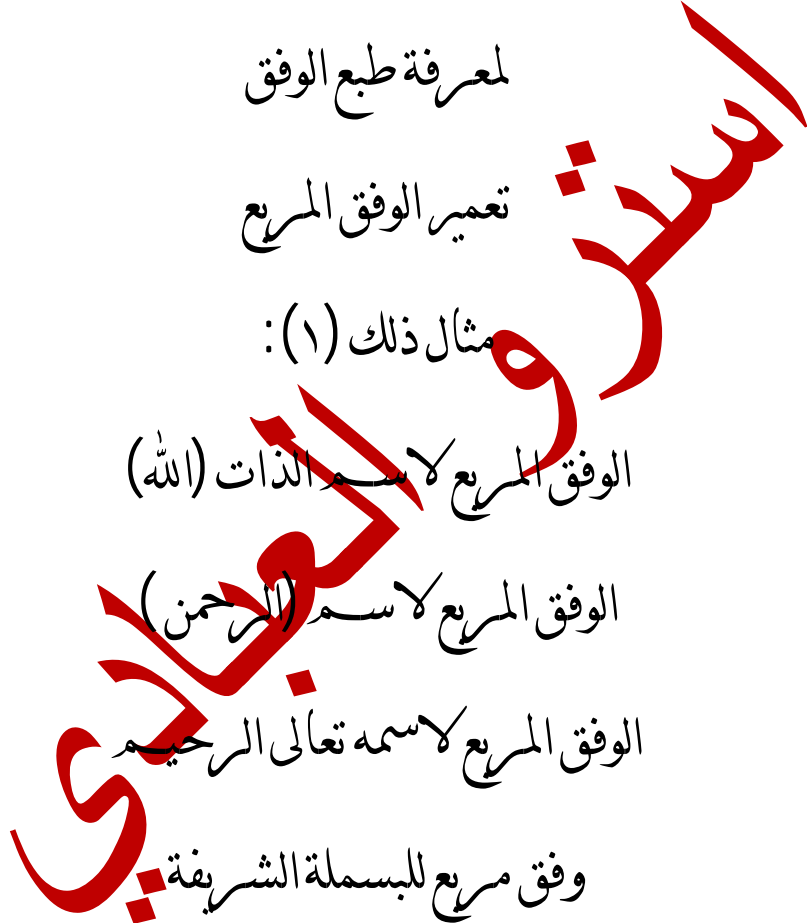 لمعرفة طبع الوفق
تعمير الوفق المربع
مثال ذلك (١) :
الوفق المربع لاسم الذات (الله)
الوفق المربع لاسم (الرحمن)
الوفق المربع لاسمه تعالى الرحيم
وفق مربع للبسملة الشريفة
استرو العبادي